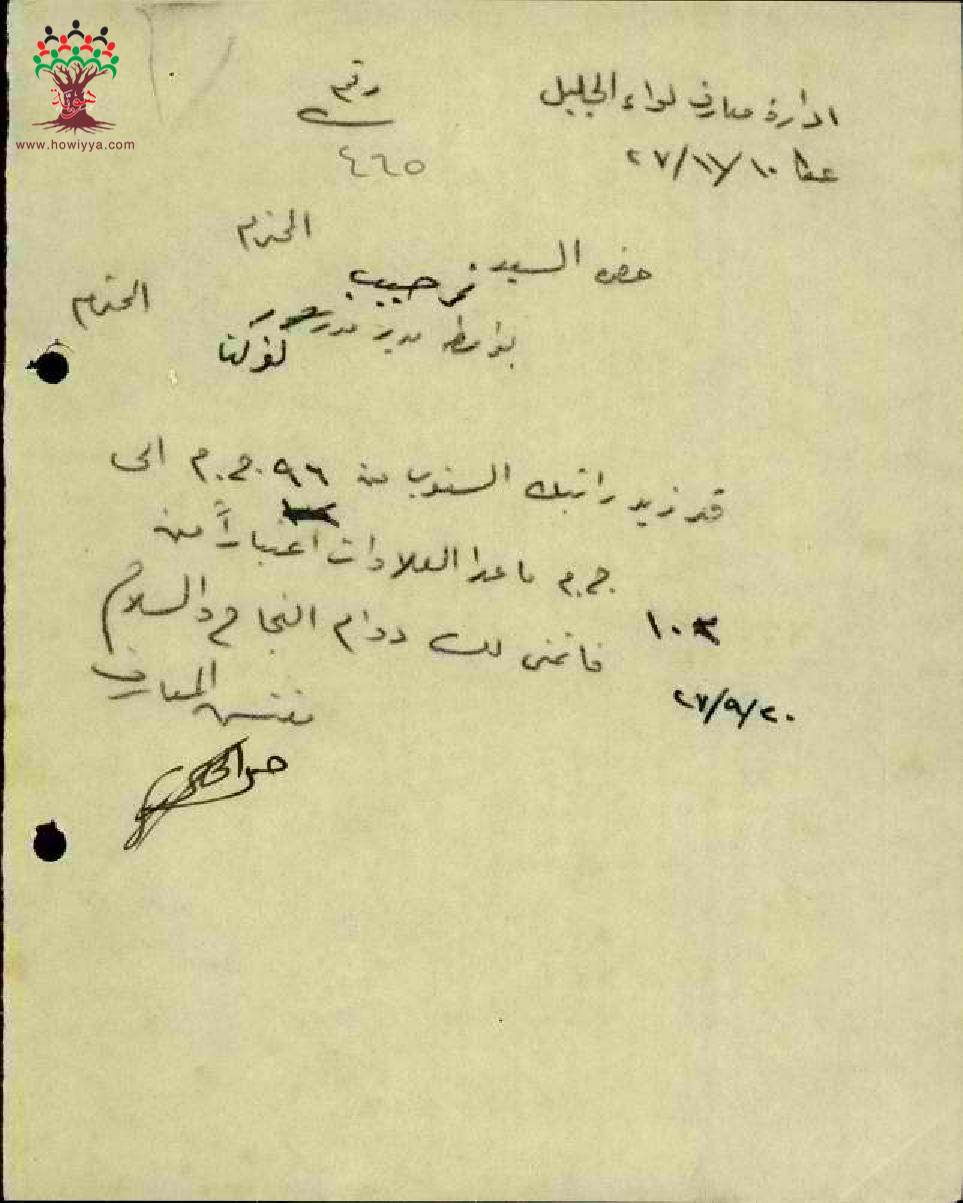 هوية
www.howiyya.com
ادارة معارف لواء الجليل
رقم
عكا ١٠/١١/٢٧
٤٦٥
حضرة السيد نمر حبيب المحترم
بواسطة مدير مدرسة المحترم
كفركنا
قد زيد راتبك السنوي من ٩٦ ج.م الى
ج.م ما عدا العلاوات اعتباراً من
١٠٢
فاتمنى لك دوام النجاح والسلام
٢٠/٩/٢٧
مفتش المعارف